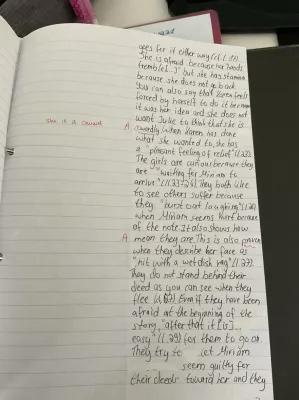 goes for it either way (cf. l. 17).
She is afraid because her "hands
tremble[...]" but she has stamina
because she does not go back.
You can also say that Karen feels
forced by herself to do it because
it was her idea and she does not
want Julie to think that she is
she is a coward A cowardly. When Karen has done
what she wanted to, she has
a "pleasant feeling of relief" (l. 23).
The girls are curious because they
are "waiting for Miriam to
arrive" (l. 25-26). They both like
to see others suffer because
they "burst out laughing"
when Miriam seems hurt because
of the note. It also shows how
A mean they are. This is also proven
when they describe her face as
"hit with a wet dish rag" (l. 37).
They do not stand behind their
deed as you can see when they
flee. Even if they have been
afraid at the beginning of the
story "after that it [is]...
easy" (l. 39) for them to go on.
They try to let Miriam
seem guilty for
their deeds toward her and they